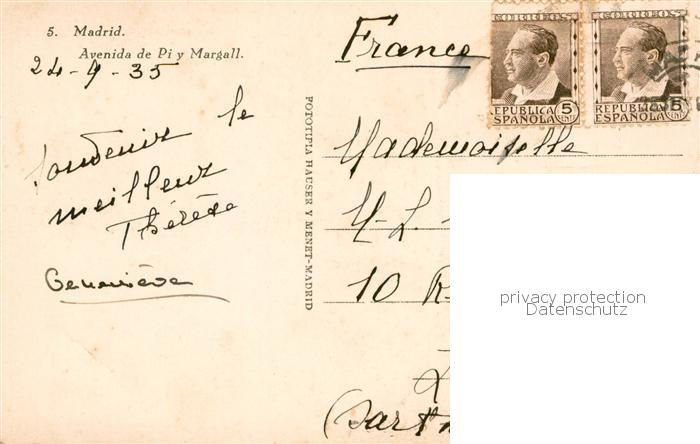 5. Madrid.
Avenida de Pi y Margall.
24-9-35
Souvenir le
meilleur
Thérèse
Geneviève
FOTOTIPIA HAUSER Y MENET-MADRID
France
REPUBLICA
ESPAÑOLA
5
CENTS
REPUBLICA
ESPAÑOLA
5
CENTS
Mademoiselle
M-L.
10 R
privacy protection
Datenschutz
(Sart